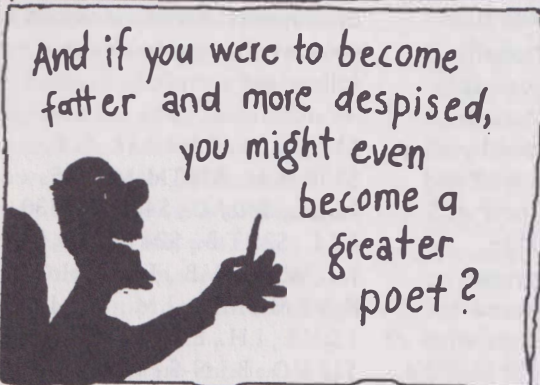 And if you were to become
fatter and more despised,
you might even
become a
greater
poet?